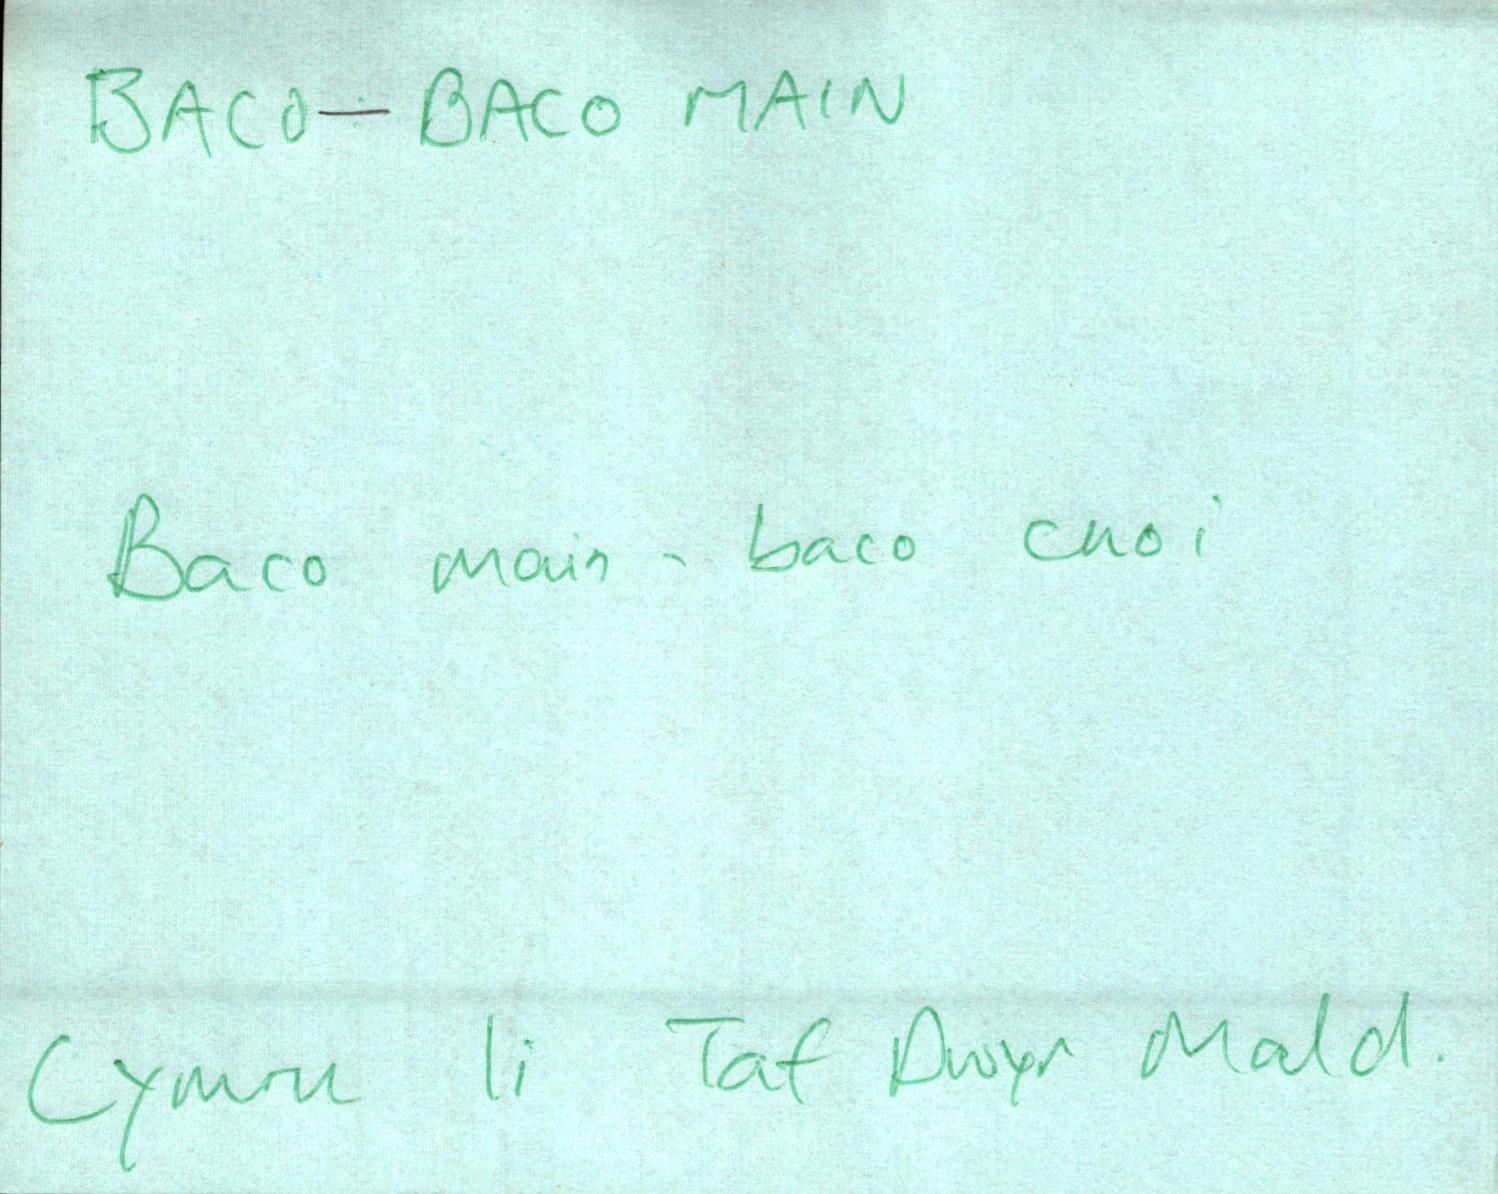 BACO — BACO MAIN
Baco main - baco cnoi
Cymru li Taf Dwyr Mald.